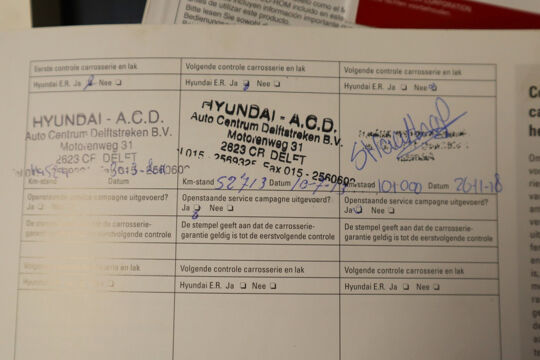 ROM incluido en este
incluyen información importante
antes de utilizar este producto.
Bitte lesen Sie sowohl
CORPORATION
Eerste controle carrosserie en lak
Hyundai E.R. Ja Nee
HYUNDAI - A.C.D.
Auto Centrum Delftstreken B.V.
Motorenweg 31
2623 CR DELFT
Km-stand Datum
Openstaande service campagne uitgevoerd?
Ja Nee
De stempel geeft aan dat de carrosserie-
garantie geldig is tot de eerstvolgende controle
Volgende controle carrosserie en lak
Hyundai E.R. Ja Nee
HYUNDAI - A.C.D.
Auto Centrum Delftstreken B.V.
Motorenweg 31
2623 CR DELFT
015 - 2569325 Fax 015 - 2560602
Km-stand 52713 Datum
Openstaande service campagne uitgevoerd?
Ja Nee
De stempel geeft aan dat de carrosserie-
garantie geldig is tot de eerstvolgende controle
Volgende controle carrosserie en lak
Hyundai E.R. Ja Nee
Km-stand 101000 Datum 26-11-18
Openstaande service campagne uitgevoerd?
Ja Nee
De stempel geeft aan dat de carrosserie-
garantie geldig is tot de eerstvolgende controle
Volgende controle carrosserie en lak
Hyundai E.R. Ja Nee
Volgende controle carrosserie en lak
Hyundai E.R. Ja Nee
Volgende controle carrosserie en lak
Hyundai E.R. Ja Nee